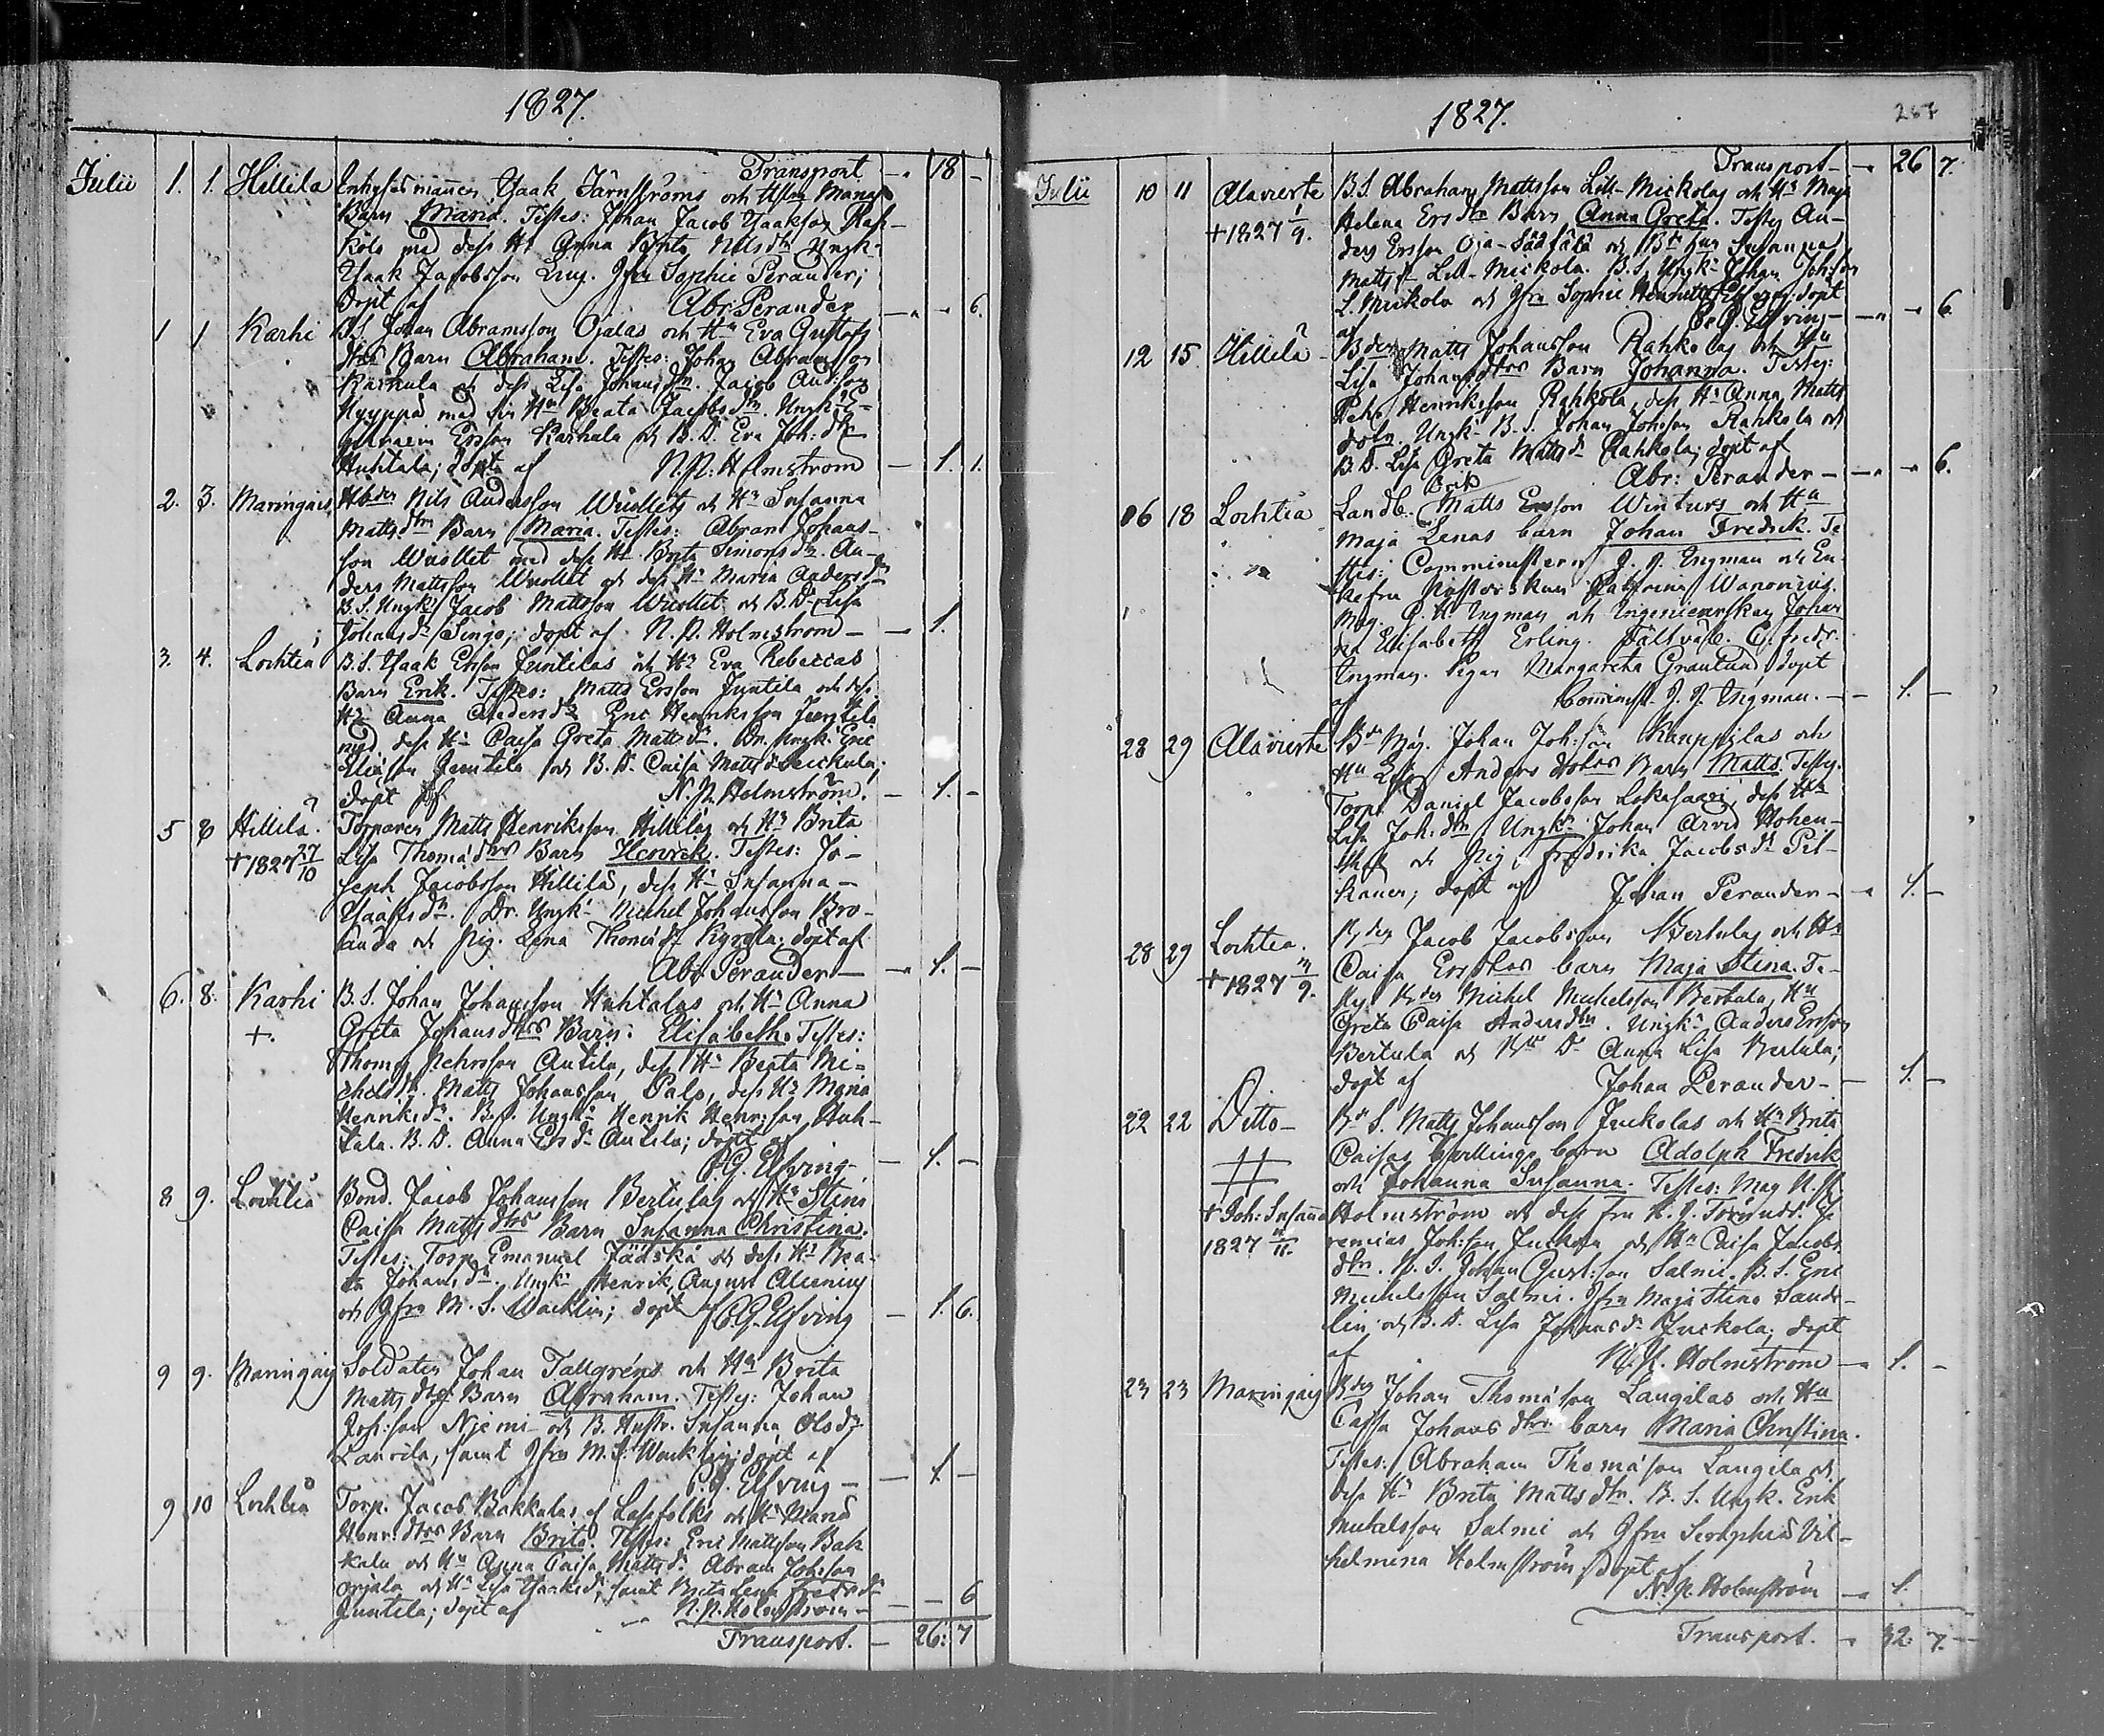 1827.
Transport - 18 -
Julii 1. 1. Hillilä Isaak Järnströms och Hustr Marias
Barn Maria. Testes: Johan Jacob Isaaksson
med dess Hu Anna Brita Nilsdr Ungk.
Isaak Jacobsson Jfru Sophie Perander;
döpt af Abr: Perander - - 6.
1 1 Karhi B.S. Johan Abramsson Ojalas och Hu Eva Gustafs
dtrs Barn Abraham. Testes: Johan Abramsson
Karhula och dess Lisa Johansdtr. Jacob Andsson
Nyyppä med sin Hu Beata Jacobsdtr. Ungk:
Ersson Karhula och B.D. Eva Joh:dtr
Huhtala; döpt af N.P. Holmström - 1. 1.
2. 3. Maringais Nils Andersson Wuollets och Hu Susanna
Mattsdtrs Barn Maria. Testes: Abram Johans-
son Wuollet med dess Hu Brita Simonsdr. An-
ders Mattsson Wuollet och dess Hu Maria Andersdr
B.S. Ungk: Jacob Mattsson Wuollet och B.D. Lisa
Johansdr Singo; döpt af N.P. Holmström - - 1.
3. 4. Lochteå B.S. Isaak Ersson Juntilas och Hu Eva Rebeccas
Barn Erik. Testes: Matts Ersson Juntila och dess
Hu Anna Andersdtr Eric Henriksson
med dess Hu Caisa Greta Mattsdr. Dr. Ungk: Eric
Eliasson Juntila och B.D. Caisa Mattsdr
döpt af N.P. Holmström. - 1. -
5 8 Hillilä. Torparen Matts Henriksson Hillilä och Hu Brita
+ 1827 27/10 Lisa Thomædtrs Barn Henrick. Testes: Jo-
seph Jacobsson Hillilä, dess Hu Susanna
Isaaksdr. Dr. Ungk: Michel Johansson Bro-
anda och Pig. Lena Thomædr döpt af
Abr: Perander - 1. -
6. 8. Karhi B.S. Johan Johansson Huhtalas och Hu Anna
+. Greta Johansdtrs Barn: Elisabeth. Testes:
Thomas Pehrsson Antila, dess Hu Beata Mi-
chelsdr. Matts Johansson Palo, dess Hu Maria
Henriksdr. B.S. Ungk: Henrik Henr:sson Huh-
tala. B.D. Anna Ersdr Antila; döpt af
C.G. Elfving - 1. -
8 9. Lochteå Bond. Jacob Johansson Bertulas och Hu Stina
Caisa Mattsdtrs Barn Susanna Christina.
Testes: Torp. Emanuel och dess Hu Bea-
ta Johansdr. Ungk: Henrik August Alcenius
och Jfru M.S. Wacklin; döpt af C.G. Elfving - 1. 6.
9 9. Maringais Soldaten Johan Tallgréns och Hu Brita
Mattsdtrs Barn Abraham. Testes: Johan
Joh:son Niemi och B. Hustr. Susanna Olsdr
Laurila, samt Jfru M.S. Wacklin; döpt af
C.G. Elfving - 1 -
9 10 Lochteå Torp. Jacob Bakkalas och Hu Maria
Henr:dtrs Barn Brita. Testes: Eric Mattsson Bak
kala och Hu Anna Caisa Mattsdr Abram Johsson
Orjala och Hu Lisa Isaaksdr, samt Brita Lena Fredr.dr
Juntila; döpt af N.P. Holmström - - 6
Transport. - 26: 7
1827.
267
Transport - 26 7.
Julii 10 11 Alavierte B.S. Abraham Mattsson Lill-Mickolas och Hu Maja
+ 1827 1/9. Helena Ersdtrs Barn Anna Greta. Testes An-
ders Ersson Oja- och Susanna
Mattsdr Lill-Mickola. B.S. Ungk: Johan Joh:son
L. Mickola och Jfru Sophie Elfving; döpt
af C.G. Elfving - - 6.
12 15 Hillilä Matts Johansson Rahkolas och Hu
Lisa Johansdtrs Barn Johanna. Testes:
Pehr Henriksson Rahkola, dess Hu Anna Matts
doter. Ungk: B.S. Johan Johsson Rahkola och
B.D. Lisa Greta Mattsdr Rahkola; döpt af
Abr: Perander - - 6.
16 18 Lochteå Landb. Matts Erik Ersson Winturs och Hu
Maja Lenas barn Johan Fredrick. Te-
stes: Comministern J.J. Ingman och En-
kefru Pastorskan Catharina Wanonius.
Mag. Ingman och Ingenieurskan Johan
na Elisabeth Erling. C. Fredr.
Ingman. Pigan Margareta Granlund, döpt
af Comminist. J.J. Ingman. - 1. -
28 29 Alavierte Johan Joh:son Kauppilas och
Hu Lisa Anders doters Barn Matts. Testes:
Torp. Daniel Jacobsson Lokasaari, dess Hu
Lisa Joh:dtr Ungk: Johan Arvid Hohen-
thal och Pig. Fredrika Jacobsdr Pel-
kanen; döpt af Johan Perander - 1. -
28 29 Lochteå. Jacob Jacobsson Bertulas och Hu
+ 1827 /9. Caisa Ersdtrs barn Maja Stina. Te-
stes Michel Michelsson Bertula, Hu
Greta Caisa Andersdtr. Ungk: Anders Ersson
Bertula och Dr Anna Lisa Bertula;
döpt af Johan Perander - 1. -
22 22 Ditto - B.S. Matts Johansson Juckolas och Hu Brita
Caisas Tvillinge barn Adolph Fredrik
och Johanna Susanna. Testes: Mag N.P.
+ Joh: Susanna Holmström och dess fru Je
1827 /11. remias Joh:son Juckola och Hu Caisa Jacobs
dtr. B.S. Johan Gust:son Salmi. B.S. Eric
Michelsson Salmi. Jfru Maja Stina Sand-
lin, och B.D. Lisa Johansdr Juckola, döpt
af N.P. Holmström - 1. -
23 23 Maringais Johan Thomæson Langilas och Hu
Caisa Johans dtrs barn Maria Christina.
Testes: Abraham Thomæson Langila och
dess Hu Brita Mattsdtr. B.S. Ungk. Erik
Michelsson Salmi och Jfru Seraphia Vil-
helmina Holmström, döpt af
N.P. Holmström - 1.
Transport. - 32. 7. -